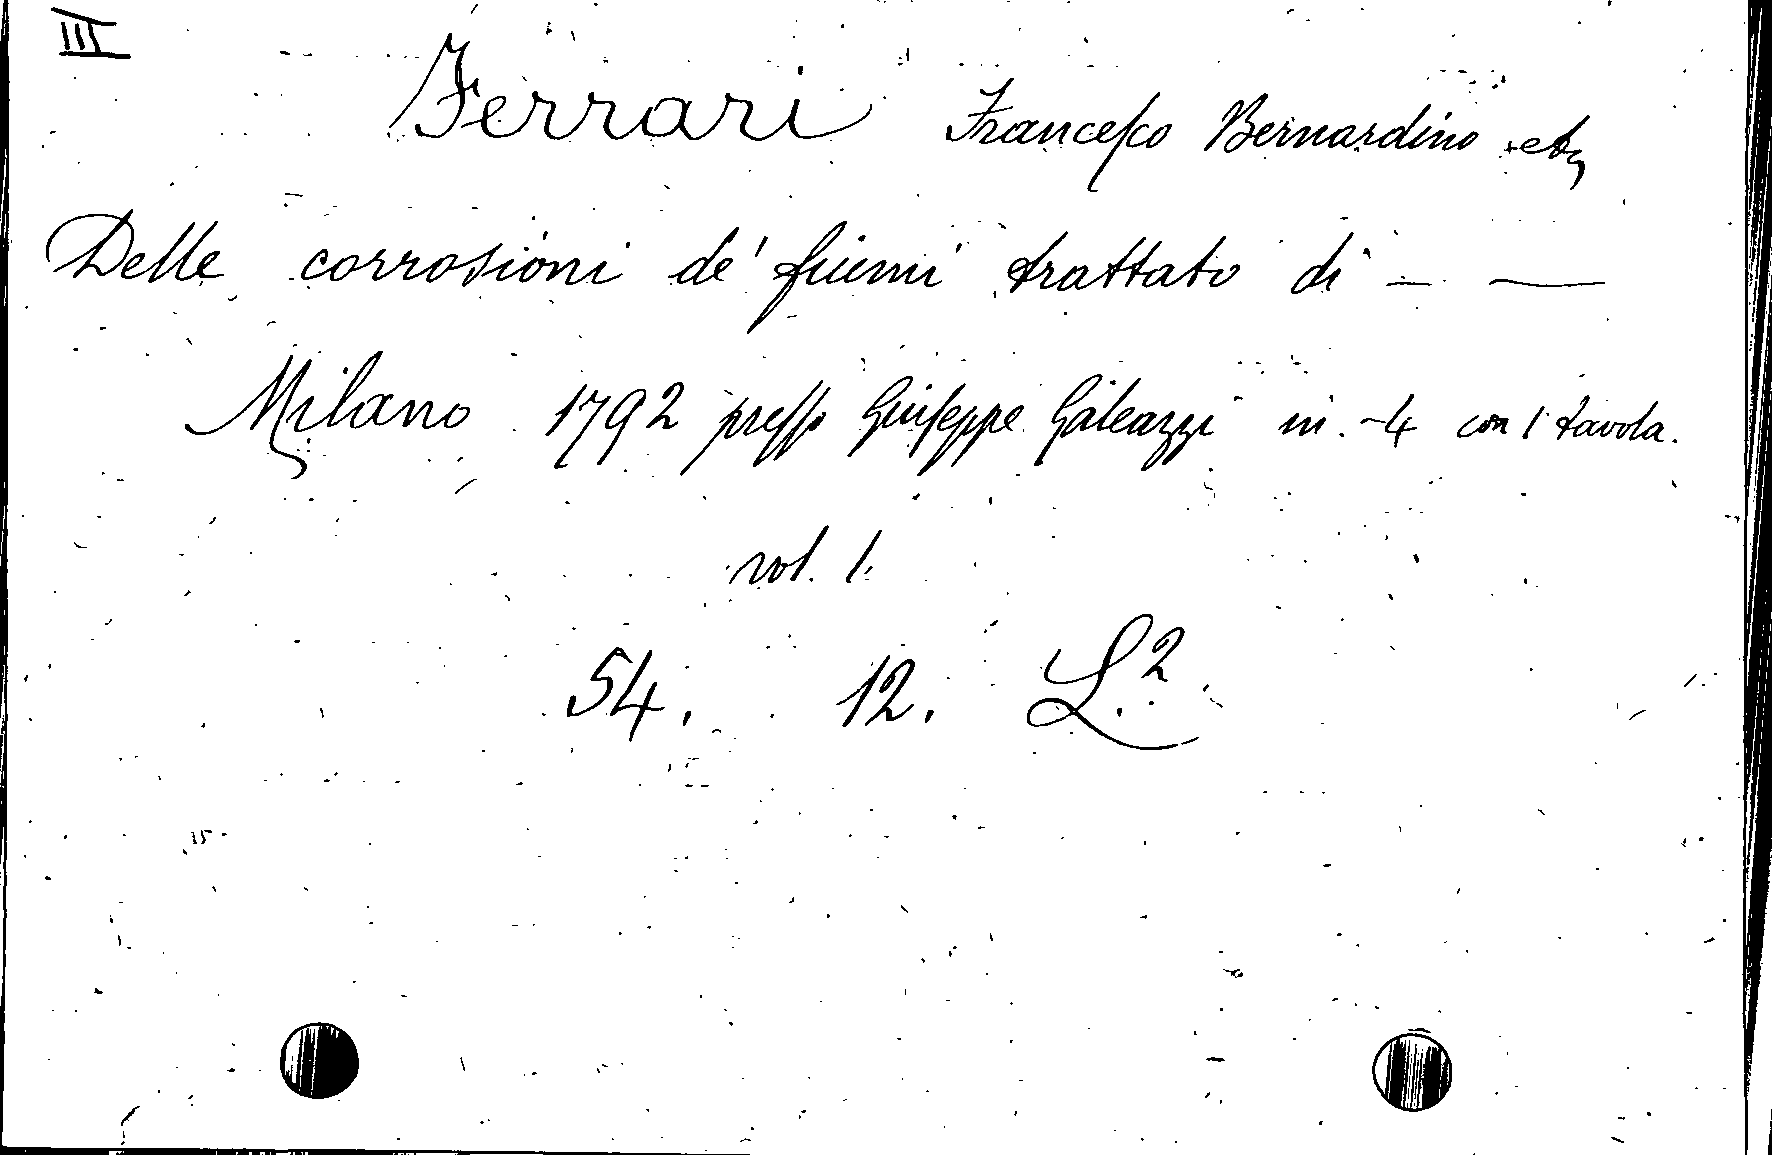 III
Ferrari Francesco Bernardino
Delle corrosioni de' fiumi trattato di — —
Milano 1792 presso Giuseppe Galeazzi in -4 con 1 tavola.
vol. 1.
54. 12. L.²